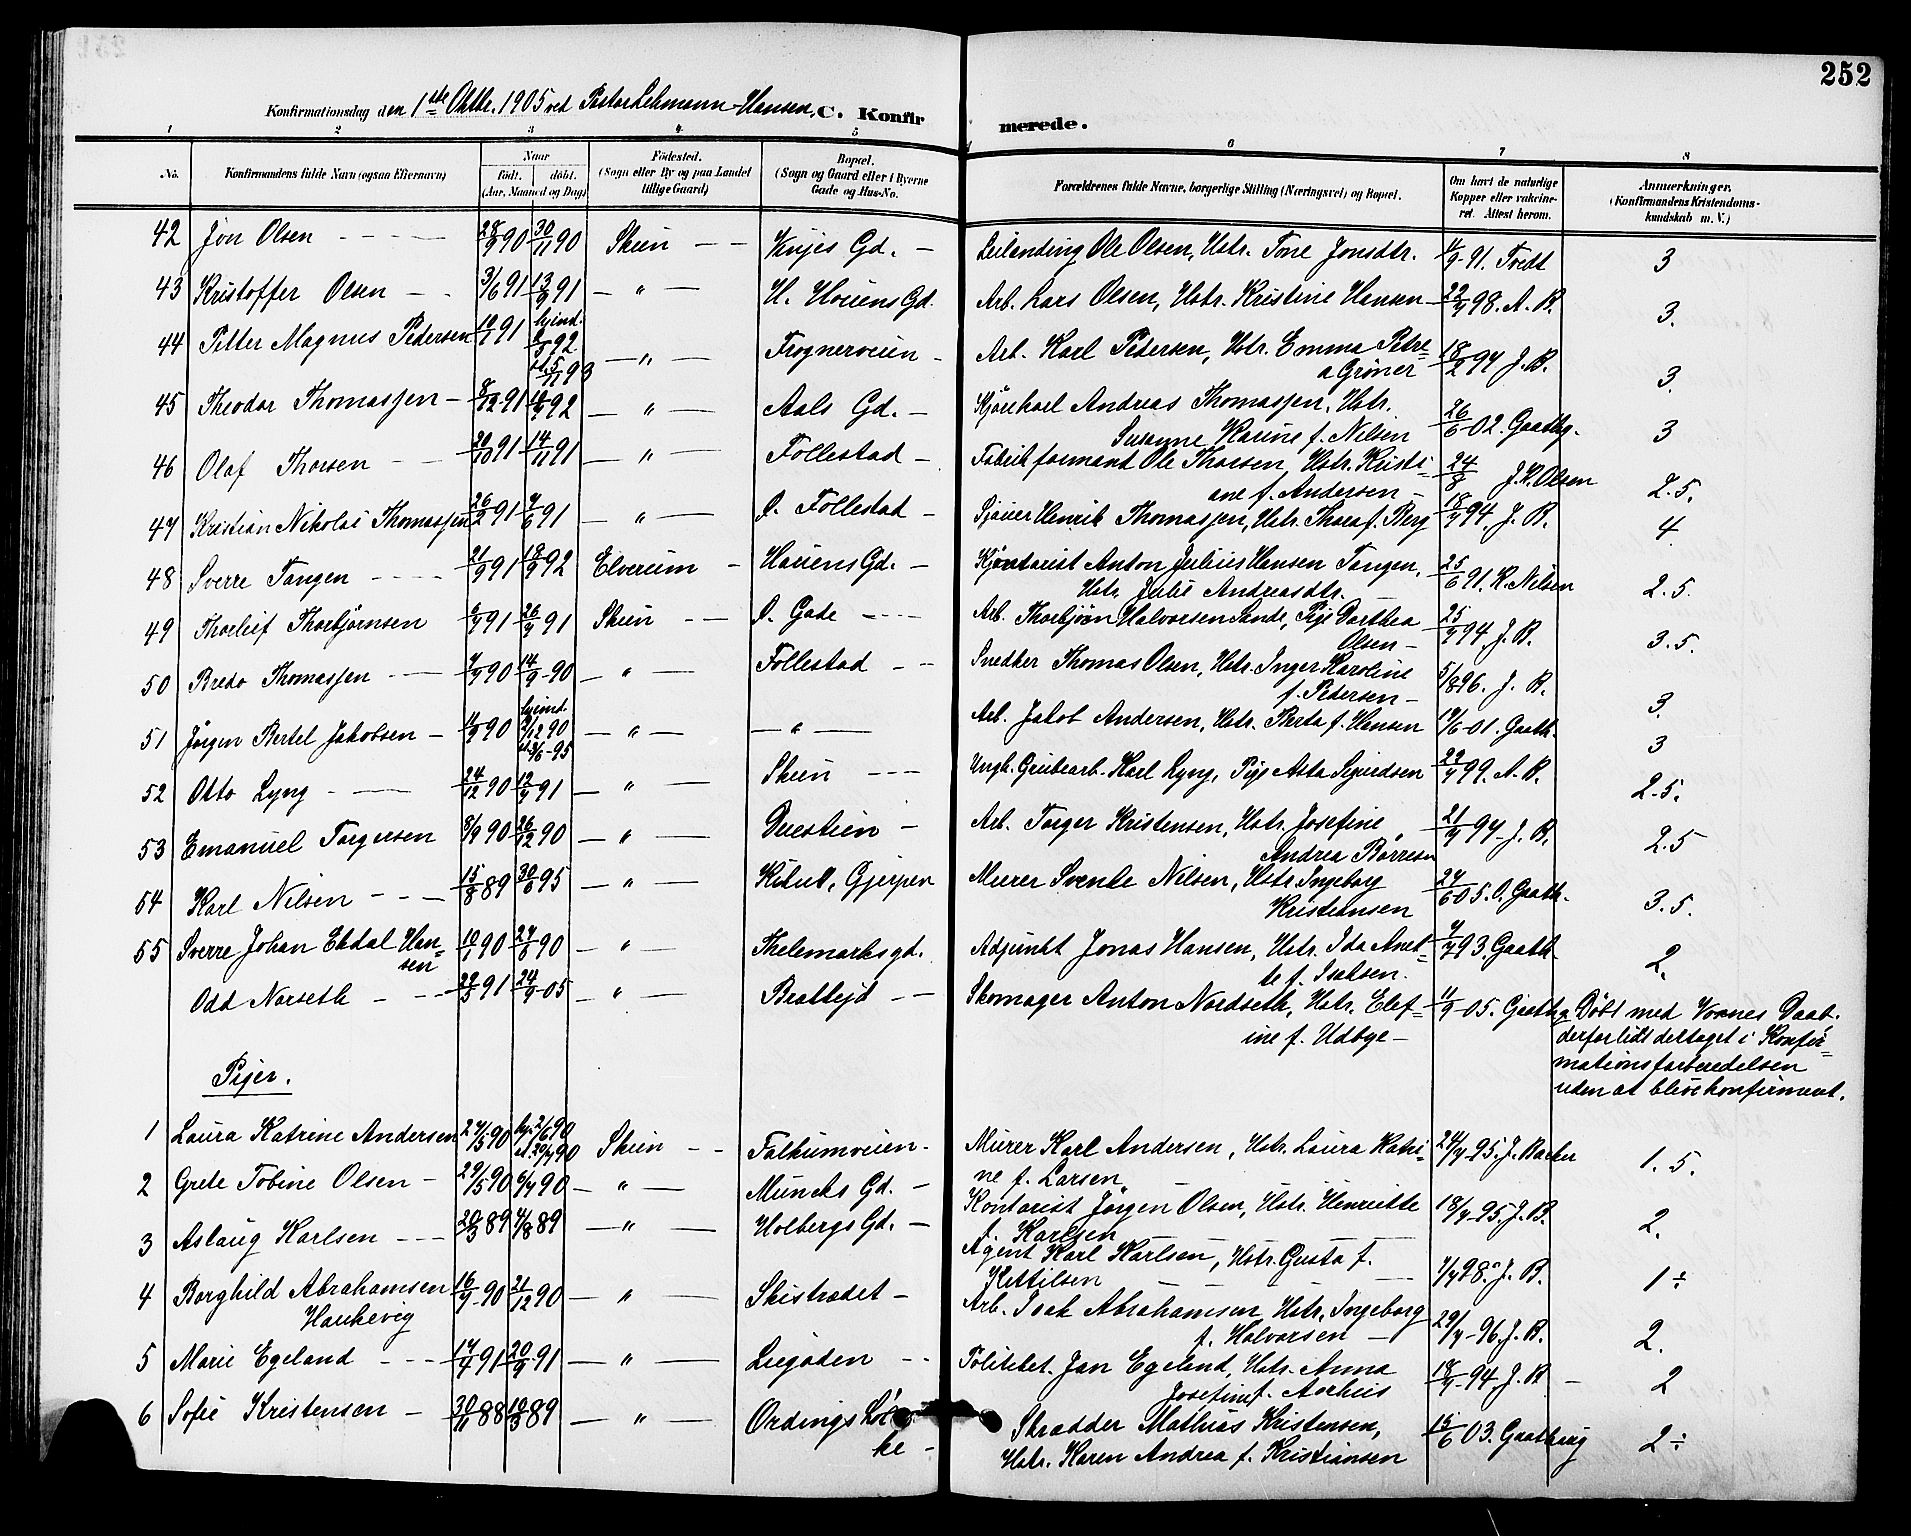 252
Konfirmationsdag den 1ste Oktbr. 1905 ved Pastor Lehmann-Hansen, C. Konfirmerede.
1 2 3 4 5 6 7 8
No. Konfirmandens fulde Navn (ogsaa Efternavn) Naar født. døbt. (Aar, Maaned og Dag) Fødested. (Sogn eller By og paa Landet tillige Gaard) Bopæl. (Sogn og Gaard eller i Byerne Gade og Hus-No. Forældrenes fulde Navne, borgerlige Stilling (Næringsvei) og Bopæl. Om havt de naturlige Kopper eller vakcineret. Attest herom. Anmerkninger. (Konfirmandens Kristendomskundskab m. V.)
42 Jon Olsen 28/9 90 30/11 90 Skien Knijes Gd. Leilending Ole Olsen, Hstr. Tone Jonsdtr. 11/9-91. Tvedt 3
43 Kristoffer Olsen 3/6 91 13/9 91 " H. Houens Gd. Arb. Lars Olsen, Hstr. Kristine Hansen 22/4 98. A. B. 3.
44 Petter Magnus Pedersen 10/1 91 hjemd. 92 st. 5/11 93 " Frognerveien Arb. Karl Pedersen, Hstr. Emma Petrea Grøner 18/2 94 J. B. 3.
45 Theodor Thomassen 8/12 91 92 " Aals Gd. Andreas Thomassen, Hstr. Susanne Karine f. Nilsen 26/6 02. Gaathg. 3
46 Olaf Thorsen 20/10 91 14/11 91 " Follestad Fabrikformand Ole Thorsen, Hstr. Kristiane f. Andersen 24/8 J. V. Olsen 2.5.
47 Kristian Nikolai Thomassen 26/2 91 7/6 91 " Ø. Follestad Sjauer Henrik Thomassen, Hstr. Thora f. Berg 18/4 94. J. B. 4.
48 Sverre Tangen 21/9 91 18/9 92 Elverum Houens Gd. Kontorist Anton Julius Hansen Tangen, Hstr. Julie Andreasdtr. 25/6 91. K. Nilsen 2.5.
49 Thorleif Thorbjørnsen 91 26/7 91 Skien Ø. Gade Arb. Thorbjørn Halvorsen Sande, Pige Dorthea Olsen 25/4 94 J. B. 3.5.
50 Bredo Thomassen 90 14/9-90 " Follestad Snedker Thomas Olsen, Hstr. Inger Karoline f. Pedersen 5/8 96. J. B. 3.
51 Jørgen Bertel Jakobsen 11/9 90 hjemd. 2/12 90 st. 3/6-95 " " Arb. Jakob Andersen, Hstr. Berta f. Hansen 19/6-01. Gaath. 3
52 Otto Lyng 24/12 90 12/4 91 " Skien Ungk. Grubearb. Karl Lyng, Pige Asta Sigurdsen 22/4 99. A. B. 2.5.
53 Emanuel Torgersen 3/9 90 26/12 90 " Duestien Arb. Torger Kristensen, Hstr. Josefine Andrea Børresen 21/4 94 J. B. 2.5
54 Karl Nilsen 15/8 89 30/6 95 " Kilull, Gjerpen Murer Svenke Nilsen, Hstr. Ingeborg Kristiansen 27/6 05. O. Gaath. 3.5.
55 Sverre Johan Ekdal Hansen 10/1 90 27/6 90 " Thelemarksgd. Adjunkt Jonas Hansen, Hstr. Ida Anette f. Isaksen. 7/4 93 Gaath. 2.
Odd Norseth 22/5 91 24/9-05 " Brattejd Skomager Anton Nordseth, Hstr. Elefine f. Udbye 11/9-05. Gaathg. Døbt med Voxnes Daab. derfor lidt deltaget i Konfirmationsforberedelsen uden at blive konfirmert.
Piger.
1 Laura Katrine Andersen 27/5 90 hj. 2/6 90 st. 20/7 90 Skien Falkumveien Murer Karl Andersen, Hstr. Laura Katrine f. Larsen 24/4-95. J. Backer 1.5.
2 Grete Tobine Olsen 29/5 90 6/7 90 " Munchs Gd. Kontorist Jørgen Olsen, Hstr. Henriette f. Karlsen 18/4-95. J. B. 2.
3 Aslaug Karlsen 20/3 89 4/8 89 " Holbergs Gd. Agent Karl Karlsen, Hstr. Gusta f. Kittilsen 1/4 98. J. B. 1÷
4 Borghild Abrahamsen Haukevig 16/9-90 21/12 90 " Skistredet Arb. Isak Abrahamsen, Hstr. Ingeborg f. Halvorsen 29/4-96. J. B. 2.
5 Marie Egeland 17/4 91 20/9 91 " Liegaden Politibet. Jan Egeland, Hstr. Anna Josefine f. Aarhuis 18/4-94 J. B 2
6 Sofie Kristensen 30/11 88 10/3 89 " Ordings Løkke Skrædder Mathias Kristensen, Hstr. Karen Andrea f. Kristiansen 15/6 03. Gaathaug 2÷